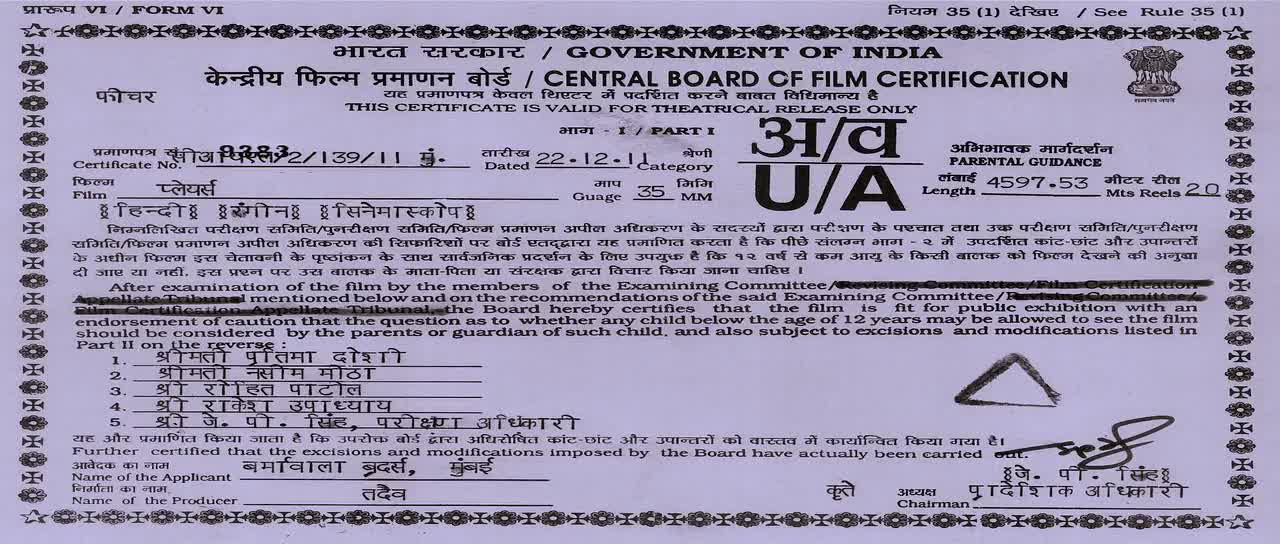 प्रारूप VI / FORM VI नियम 35 (1) देखिए / See Rule 35 (1)
भारत सरकार / GOVERNMENT OF INDIA
केन्द्रीय फिल्म प्रमाणन बोर्ड / CENTRAL BOARD OF FILM CERTIFICATION
फीचर यह प्रमाणपत्र केवल थिएटर में प्रदर्शित करने बाबत विधिमान्य है
THIS CERTIFICATE IS VALID FOR THEATRICAL RELEASE ONLY
भाग - I / PART I अ/व
प्रमाणपत्र सं. 9383 तारीख श्रेणी अभिभावक मार्गदर्शन
Certificate No. सीआयएल/2/139/11 मुं. Dated 22.12.11 Category PARENTAL GUIDANCE
फिल्म माप मिमि U/A लंबाई मीटर रील
Film प्लेयर्स Guage 35 MM Length 4597.53 Mts Reels 20
हिन्दी रंगीन सिनेमास्कोप
निम्नलिखित परीक्षण समिति/पुनरीक्षण समिति/फिल्म प्रमाणन अपील अधिकरण के सदस्यों द्वारा परीक्षण के पश्चात तथा उक्त परीक्षण समिति/पुनरीक्षण
समिति/फिल्म प्रमाणन अपील अधिकरण की सिफारिशों पर बोर्ड एतद्द्वारा यह प्रमाणित करता है कि पीछे संलग्न भाग - २ में उपदर्शित कांट-छांट और उपान्तरों
के अधीन फिल्म इस चेतावनी के पृष्ठांकन के साथ सार्वजनिक प्रदर्शन के लिए उपयुक्त है कि १२ वर्ष से कम आयु के किसी बालक को फिल्म देखने की अनुज्ञा
दी जाए या नहीं. इस प्रश्न पर उस बालक के माता-पिता या संरक्षक द्वारा विचार किया जाना चाहिए ।
After examination of the film by the members of the Examining Committee/Revising Committee/Film Certification
Appellate Tribunal mentioned below and on the recommendations of the said Examining Committee/Revising Committee/
Film Certification Appellate Tribunal, the Board hereby certifies that the film is fit for public exhibition with an
endorsement of caution that the question as to whether any child below the age of 12 years may be allowed to see the film
should be considered by the parents or guardian of such child, and also subject to excisions and modifications listed in
Part II on the reverse :
1. श्रीमती प्रतिमा दोशी
2. श्रीमती नसीम मीठा
3. श्री रोहित पाटील
4. श्री राकेश उपाध्याय
5. श्री जे. पी. सिंह, परीक्षण अधिकारी
यह और प्रमाणित किया जाता है कि उपरोक्त बोर्ड द्वारा अधिरोपित कांट-छांट और उपान्तरों को वास्तव में कार्यान्वित किया गया है।
Further certified that the excisions and modifications imposed by the Board have actually been carried out.
आवेदक का नाम जे. पी. सिंह
Name of the Applicant बर्मावाला ब्रदर्स, मुंबई
निर्माता का नाम. कृते अध्यक्ष प्रादेशिक अधिकारी
Name of the Producer तदैव Chairman